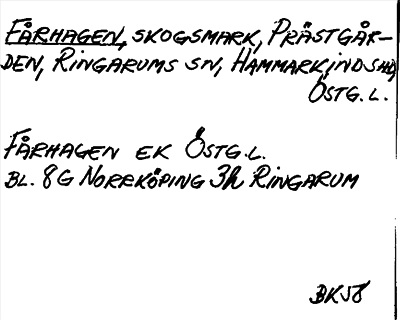 FÅRHAGEN, SKOGSMARK, PRÄSTGÅR-
DEN, RINGARUMS SN, HAMMARKINDS HD,
ÖSTG. L.
FÅRHAGEN EK ÖSTG. L.
BL. 8G NORRKÖPING 3h RINGARUM
BKJT